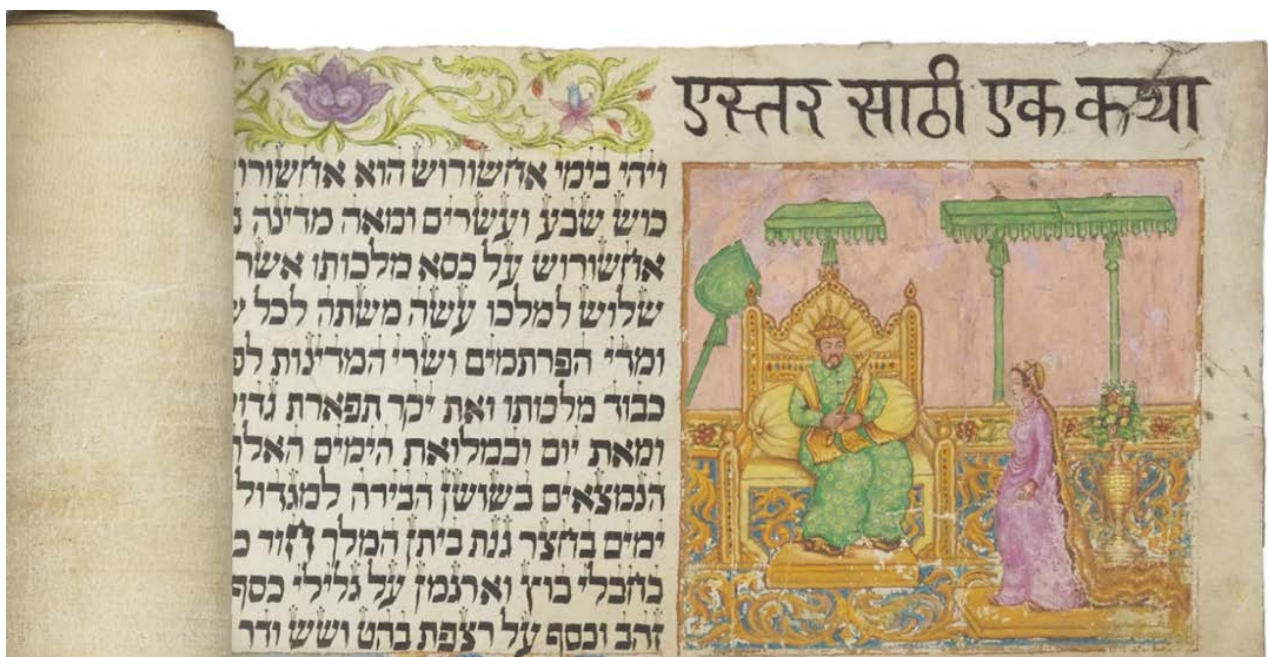 एस्तर साठी एक कथा
ויהי בימי אחשורוש הוא אחשורו
כוש שבע ועשרים ומאה מדינה
אחשורוש על כסא מלכותו אשר
שלוש למלכו עשה משתה לכל
ומדי הפרתמים ושרי המדינות לפ
כבוד מלכותו ואת יקר תפארת גדו
ומאת יום ובמלואת הימים האלו
הנמצאים בשושן הבירה למגדול
ימים בחצר גנת ביתן המלך חור כ
בחבלי בוץ וארגמן על גלילי כסף
זהב וכסף על רצפת בהט ושש ודר